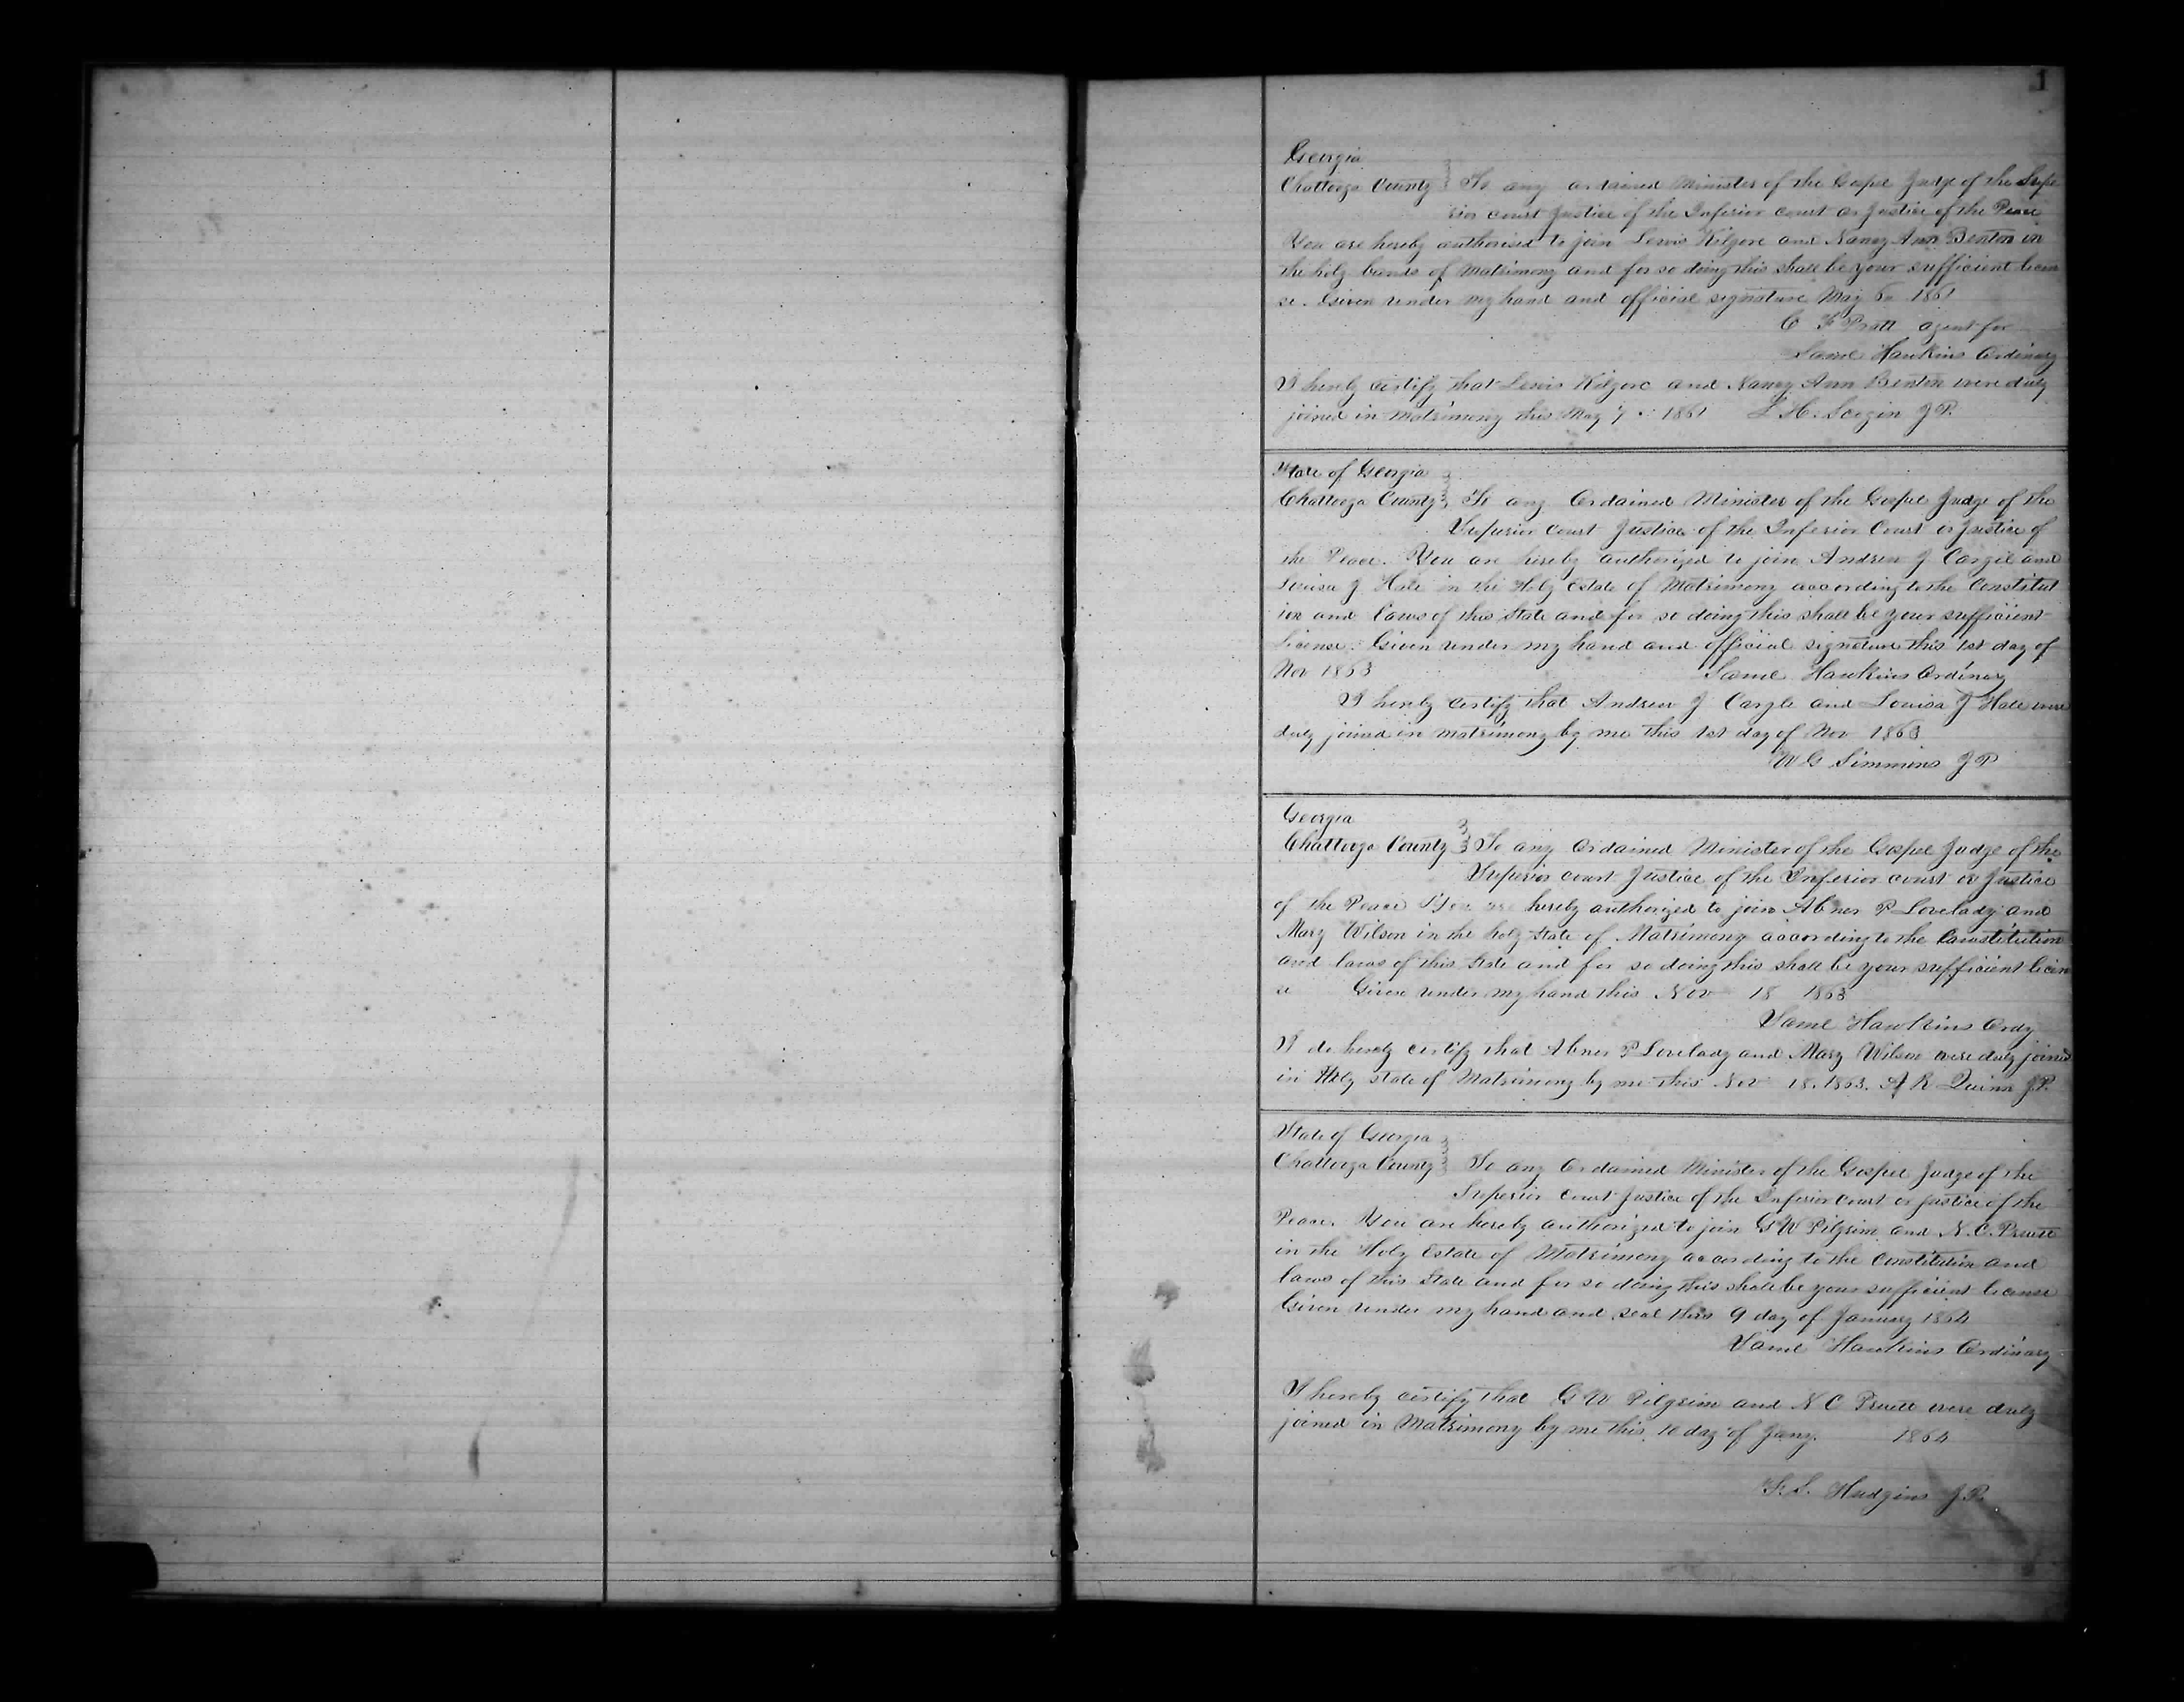 1
Georgia
Chattooga County To any ordained Minister of the Gospel Judge of the Supe
rior court Justice of the Inferior court or Justice of the Peace
You are hereby authorised to join Lewis Kilgore and Nancy Ann Benton in
the holy bands of Matrimony and for so doing this shall be your sufficient licen
se. Given under my hand and official signature May 6 1861
C F Pratt agent for
Saml Hawkins Ordinary
I hereby certify that Lewis Kilgore and Nancy Ann Benton were duly
joined in matrimony this May 7 1861 L H. Scogin J P.
State of Georgia
Chattooga County To any Ordained Minister of the Gospel Judge of the
Superior Court Justice of the Inferior Court or Justice of
the Peace. You are hereby authorized to join Andrew J Cargle and
Louisa J Hale in the Holy Estate of Matrimony according to the Constitut
ion and laws of this State and for so doing this shall be your sufficient
License. Given under my hand and official signature this 1st day of
Nov 1863 Saml Hawkins Ordinary
I hereby certify that Andrew J Cargle and Louisa J Hale were
duly joined in matrimony by me this 1st day of Nov 1863
W G Simmons J P
Georgia
Chattooga County To any Ordained Minister of the Gospel Judge of the
Superior court Justice of the Inferior court or Justice
of the Peace You are hereby authorized to join Abner P Lovelady and
Mary Wilson in the holy state of Matrimony according to the Constitution
and laws of this State and for so doing this shall be your sufficient licen
se Given under my hand this Nov 18 1863
Saml Hawkins Ordy
I do hereby certify that Abner P Lovelady and Mary Wilson were duly joined
in Holy state of Matrimony by me this Nov 18. 1863. A R Quinn J.P.
State of Georgia
Chattooga County To any Ordained Minister of the Gospel Judge of the
Superior Court Justice of the Inferior Court or Justice of the
Peace. You are hereby authorized to join G W Pilgrim and N. C. Pruett
in the Holy Estate of Matrimony according to the Constitution and
laws of this State and for so doing this shall be your sufficient license
Given under my hand and seal this 9 day of January 1864
Saml Hawkins Ordinary
I hereby certify that G W Pilgrim and N C Pruett were duly
joined in Matrimony by me this 10 day of Jany. 1864
F. S. Hudgins J P.